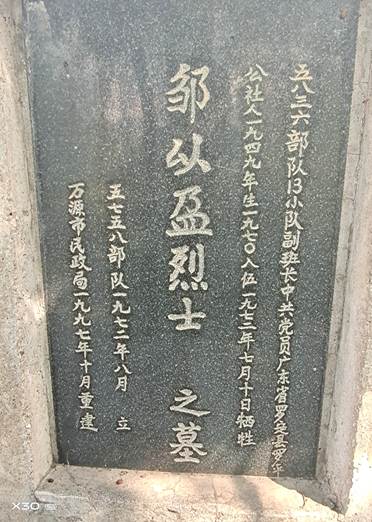 五八三六部队13小队副班长中共党员广东省罗定县罗平
公社人一九四九年生一九七〇入伍一九七二年七月十日牺牲
邹从盈烈士 之墓
五七五八部队一九七二年八月 立
万源市民政局一九九七年十月重建
X30